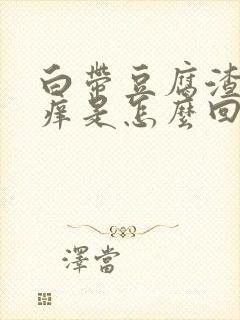 白带豆腐渣
痒是怎麽回
澤當